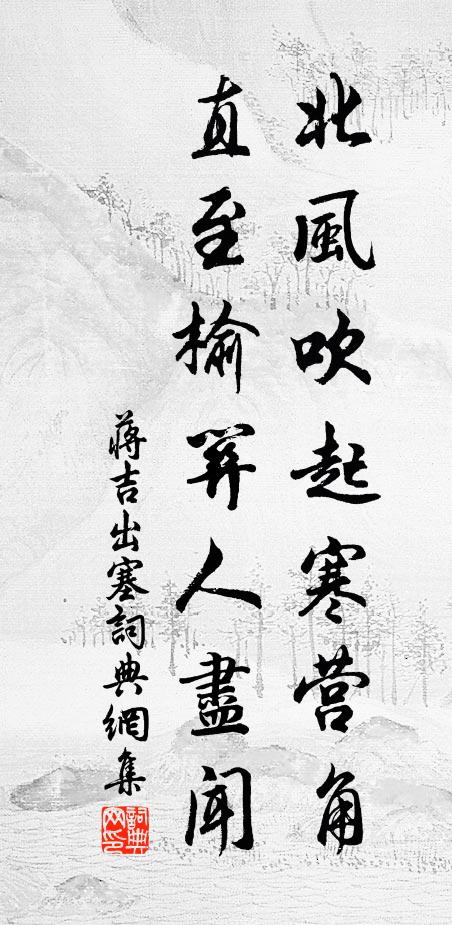 北風吹起寒营角
直至榆關人盡聞
蔣吉出塞詞典網集
詞典网印